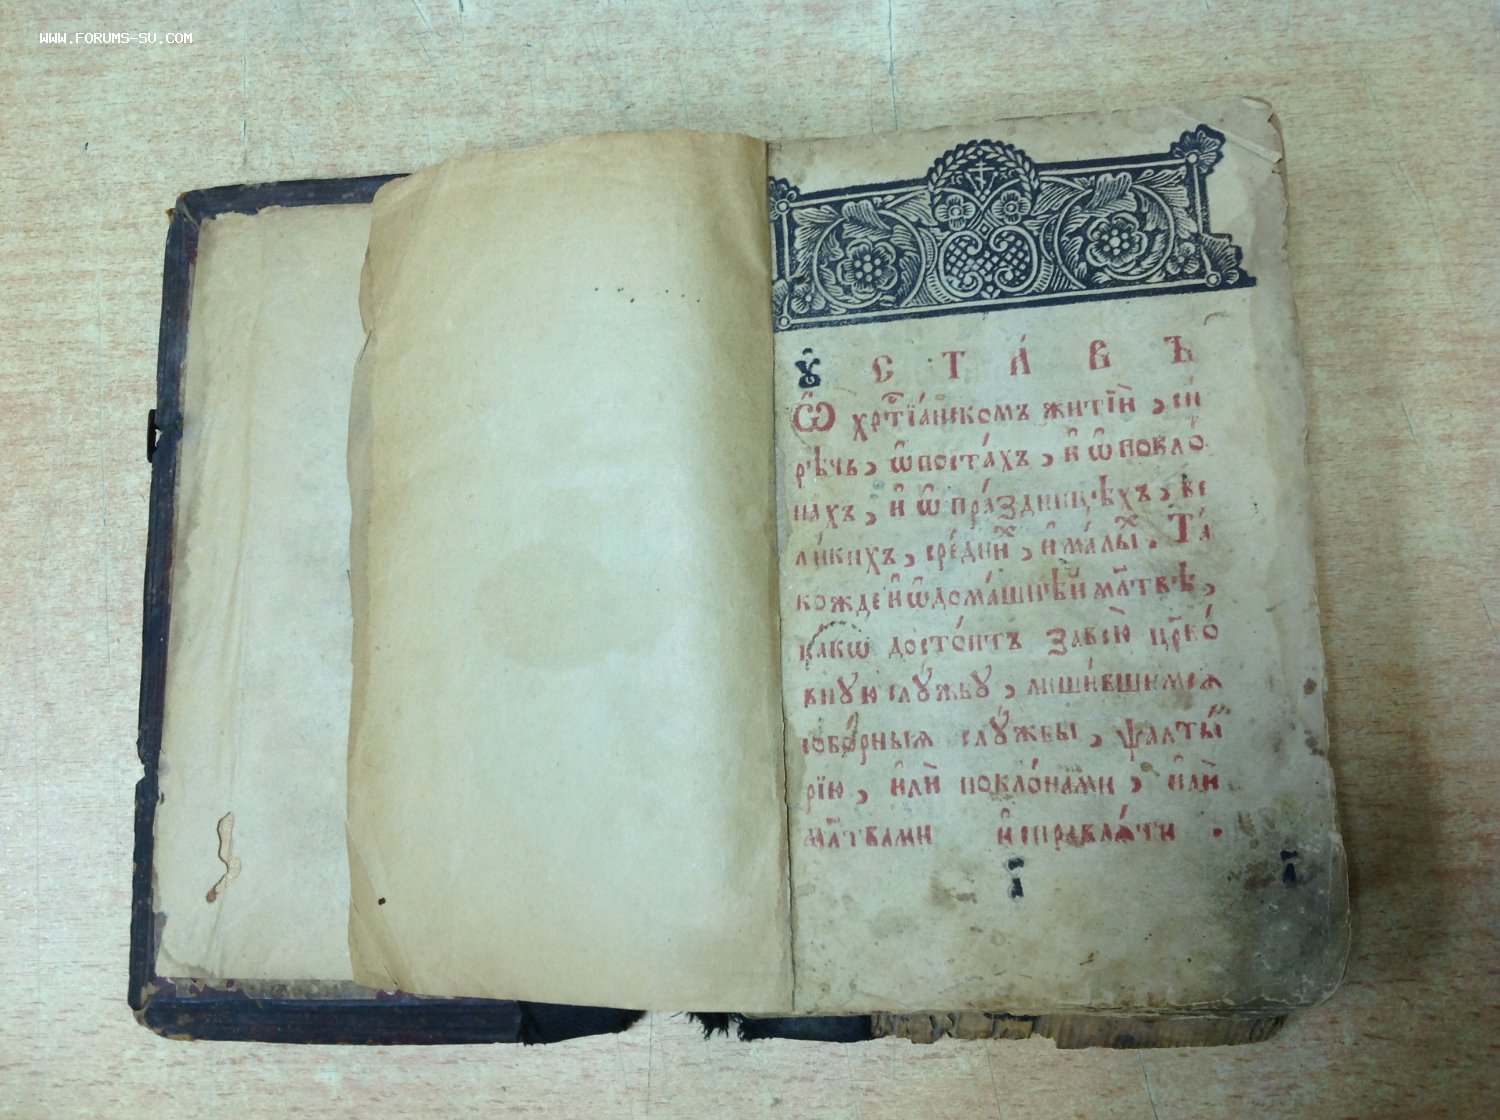 WWW.FORUMS-SU.COM
Ꙋ҆ С Т А́ В Ъ
Ѽ хрⷭ҇тїа́нскомъ житїѝ, си́
рѣчь, ѡ҆ поста́хъ, и҆ ѡ҆ покло́
нахъ, и҆ ѡ҆ пра́здницѣхъ, ве
ли́кихъ, сре́днихⷯ, и҆ ма́лыⷯ. Та́
кожде и҆ ѡ҆ дома́шнѣй мл҃твѣ,
ка́кѡ досто́итъ за всю̀ цр҃ко́
внꙋю слꙋ́жбꙋ, лиши́вшимсѧ
собо́рныѧ слꙋ́жбы, ѱалты́
рїю, и҆лѝ покло́нами, и҆лѝ
мл҃твами и҆справлѧ́ти .
а҃ а҃